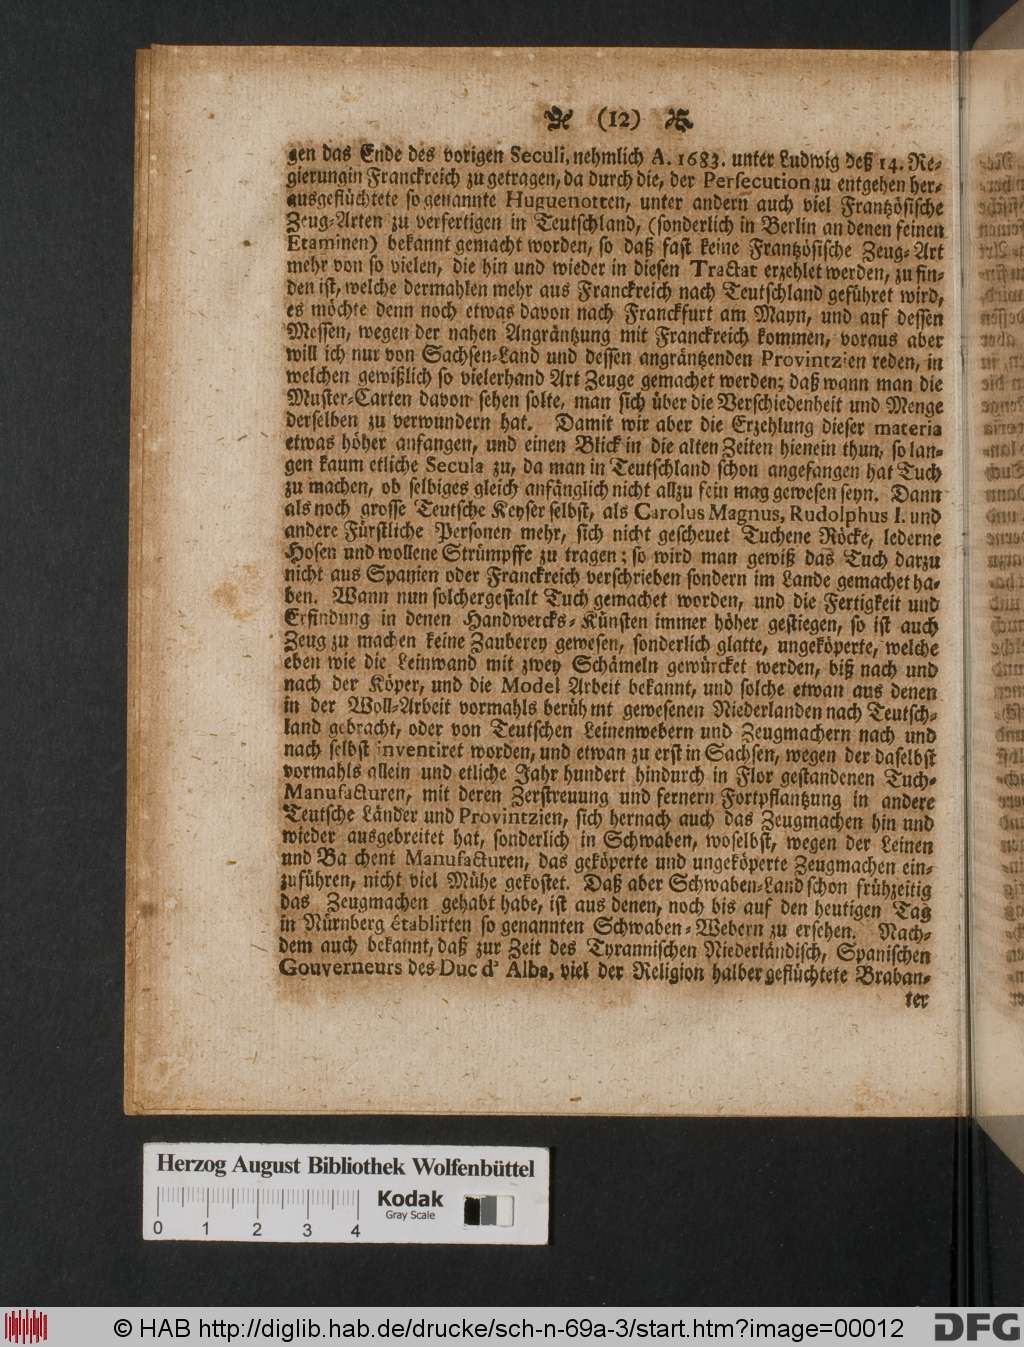 (12)
gen das Ende des vorigen Seculi, nehmlich A. 1683. unter Ludwig deß 14. Re-
gierungin Franckreich zu getragen, da durch die, der Persecution zu entgehen her-
ausgeflüchtete so genannte Huguenotten, unter andern auch viel Frantzösische
Zeug-Arten zu verfertigen in Teutschland, (sonderlich in Berlin an denen feinen
Etaminen) bekannt gemacht worden, so daß fast keine Frantzösische Zeug-Art
mehr von so vielen, die hin und wieder in diesen Tractat erzehlet werden, zu fin-
den ist, welche dermahlen mehr aus Franckreich nach Teutschland geführet wird,
es möchte denn noch etwas davon nach Franckfurt am Mayn, und auf dessen
Messen, wegen der nahen Angräntzung mit Franckreich kommen, voraus aber
will ich nur von Sachsen-Land und dessen angräntzenden Provintzien reden, in
welchen gewißlich so vielerhand Art Zeuge gemachet werden; daß wann man die
Muster-Carten davon sehen solte, man sich über die Verschiedenheit und Menge
derselben zu verwundern hat. Damit wir aber die Erzehlung dieser materia
etwas höher anfangen, und einen Blick in die alten Zeiten hienein thun, so lan-
gen kaum etliche Secula zu, da man in Teutschland schon angefangen hat Tuch
zu machen, ob selbiges gleich anfänglich nicht allzu fein mag gewesen seyn. Dann
als noch grosse Teutsche Keyser selbst, als Carolus Magnus, Rudolphus I. und
andere Fürstliche Personen mehr, sich nicht gescheuet Tuchene Röcke, lederne
Hosen und wollene Strümpffe zu tragen; so wird man gewiß das Tuch darzu
nicht aus Spanien oder Franckreich verschrieben sondern im Lande gemachet ha-
ben. Wann nun solchergestalt Tuch gemachet worden, und die Fertigkeit und
Erfindung in denen Handwercks-Künsten immer höher gestiegen, so ist auch
Zeug zu machen keine Zauberey gewesen, sonderlich glatte, ungeköperte, welche
eben wie die Leinwand mit zwey Schämeln gewürcket werden, biß nach und
nach der Köper, und die Model Arbeit bekannt, und solche etwan aus denen
in der Woll-Arbeit vormahls berühmt gewesenen Niederlanden nach Teutsch-
land gebracht, oder von Teutschen Leinenwebern und Zeugmachern nach und
nach selbst inventiret worden, und etwan zu erst in Sachsen, wegen der daselbst
vormahls allein und etliche Jahr hundert hindurch in Flor gestandenen Tuch-
Manufacturen, mit deren Zerstreuung und fernern Fortpflantzung in andere
Teutsche Länder und Provintzien, sich hernach auch das Zeugmachen hin und
wieder ausgebreitet hat, sonderlich in Schwaben, woselbst, wegen der Leinen
und Ba chent Manufacturen, das geköperte und ungeköperte Zeugmachen ein-
zuführen, nicht viel Mühe gekostet. Daß aber Schwaben-Land schon frühzeitig
das Zeugmachen gehabt habe, ist aus denen, noch bis auf den heutigen Tag
in Nürnberg établirten so genannten Schwaben-Webern zu ersehen. Nach-
dem auch bekannt, daß zur Zeit des Tyrannischen Niederländisch, Spanischen
Gouverneurs des Duc d' Alba, viel der Religion halber geflüchtete Braban-
ter
Herzog August Bibliothek Wolfenbüttel
Kodak
Gray Scale
0 1 2 3 4
© HAB http://diglib.hab.de/drucke/sch-n-69a-3/start.htm?image=00012
DFG